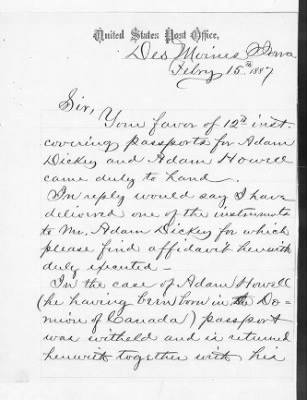 United States Post Office,
Des Moines Iowa
Febry 15th 1887
Sir,
Your favor of 12th inst.
covering passports for Adam
Dickey and Adam Howell
came duly to hand.
In reply would say I have
delivered one of the instruments
to Mr. Adam Dickey for which
please find affidavit herewith
duly executed —
In the case of Adam Howell
(he having been born in the Do-
minion of Canada) passport
was witheld and is returned
herewith together with his